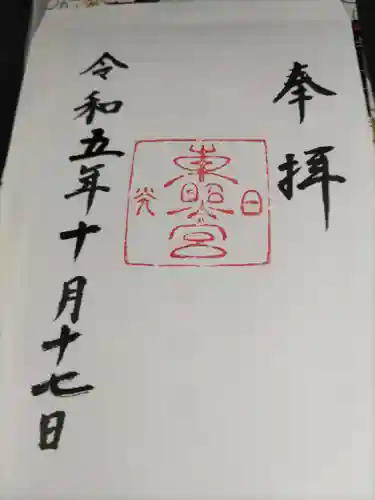 奉拝
日光
東照宮
令和五年十月十七日